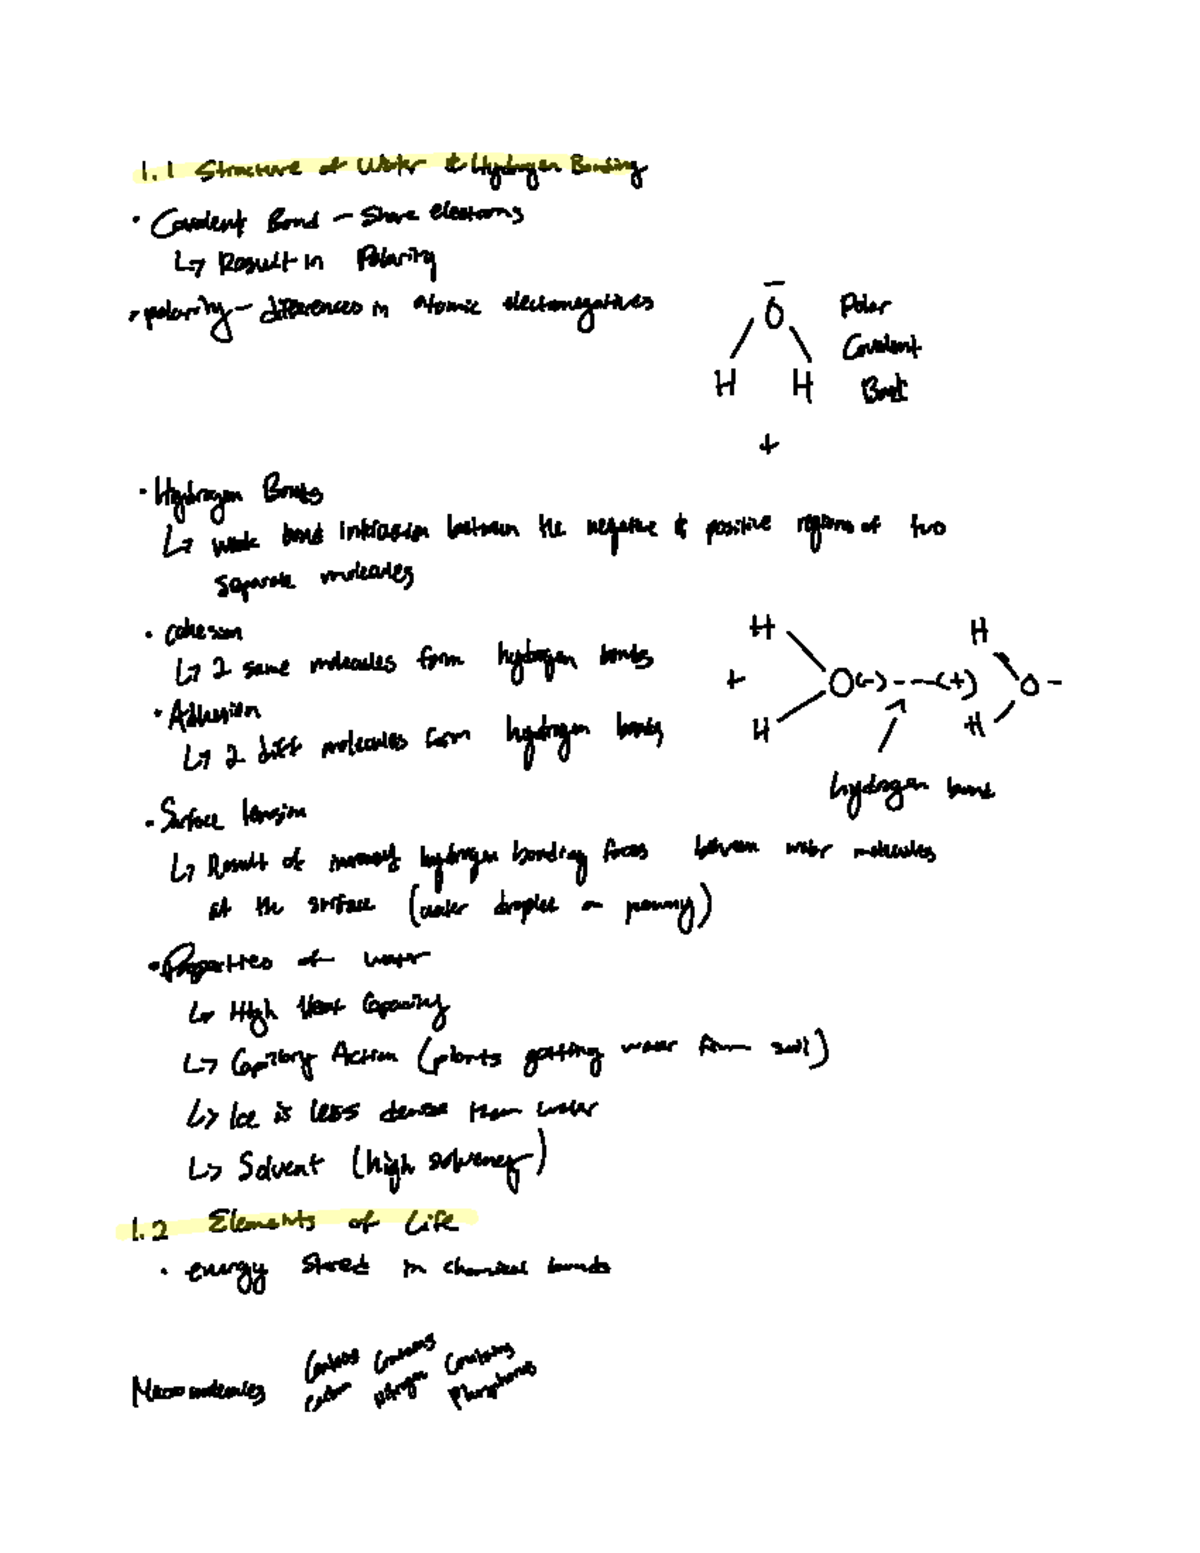 1.1 Structure of Water & Hydrogen Bonding
• Covalent Bond - Share electrons
↳ Result in Polarity
• polarity - differences in atomic electronegatives
−
O
H H
+
Polar
Covalent
Bond
• Hydrogen Bonds
↳ weak bond interaction between the negative & positive regions of two
separate molecules
• Cohesion
↳ 2 same molecules form hydrogen bonds
• Adhesion
↳ 2 diff molecules form hydrogen bonds
H H
+ O(-) - - -(+) O -
H H
hydrogen bond
• Surface tension
↳ Result of hydrogen bonding forces between water molecules
at the surface (water droplet on penny)
• Properties of water
↳ High Heat Capacity
↳ Capillary Action (plants getting water from soil)
↳ Ice is less dense than water
↳ Solvent (high solvency)
1.2 Elements of Life
• energy stored in chemical bonds
Macromolecules
Contains Carbon
Contains Nitrogen
Contains Phosphorus